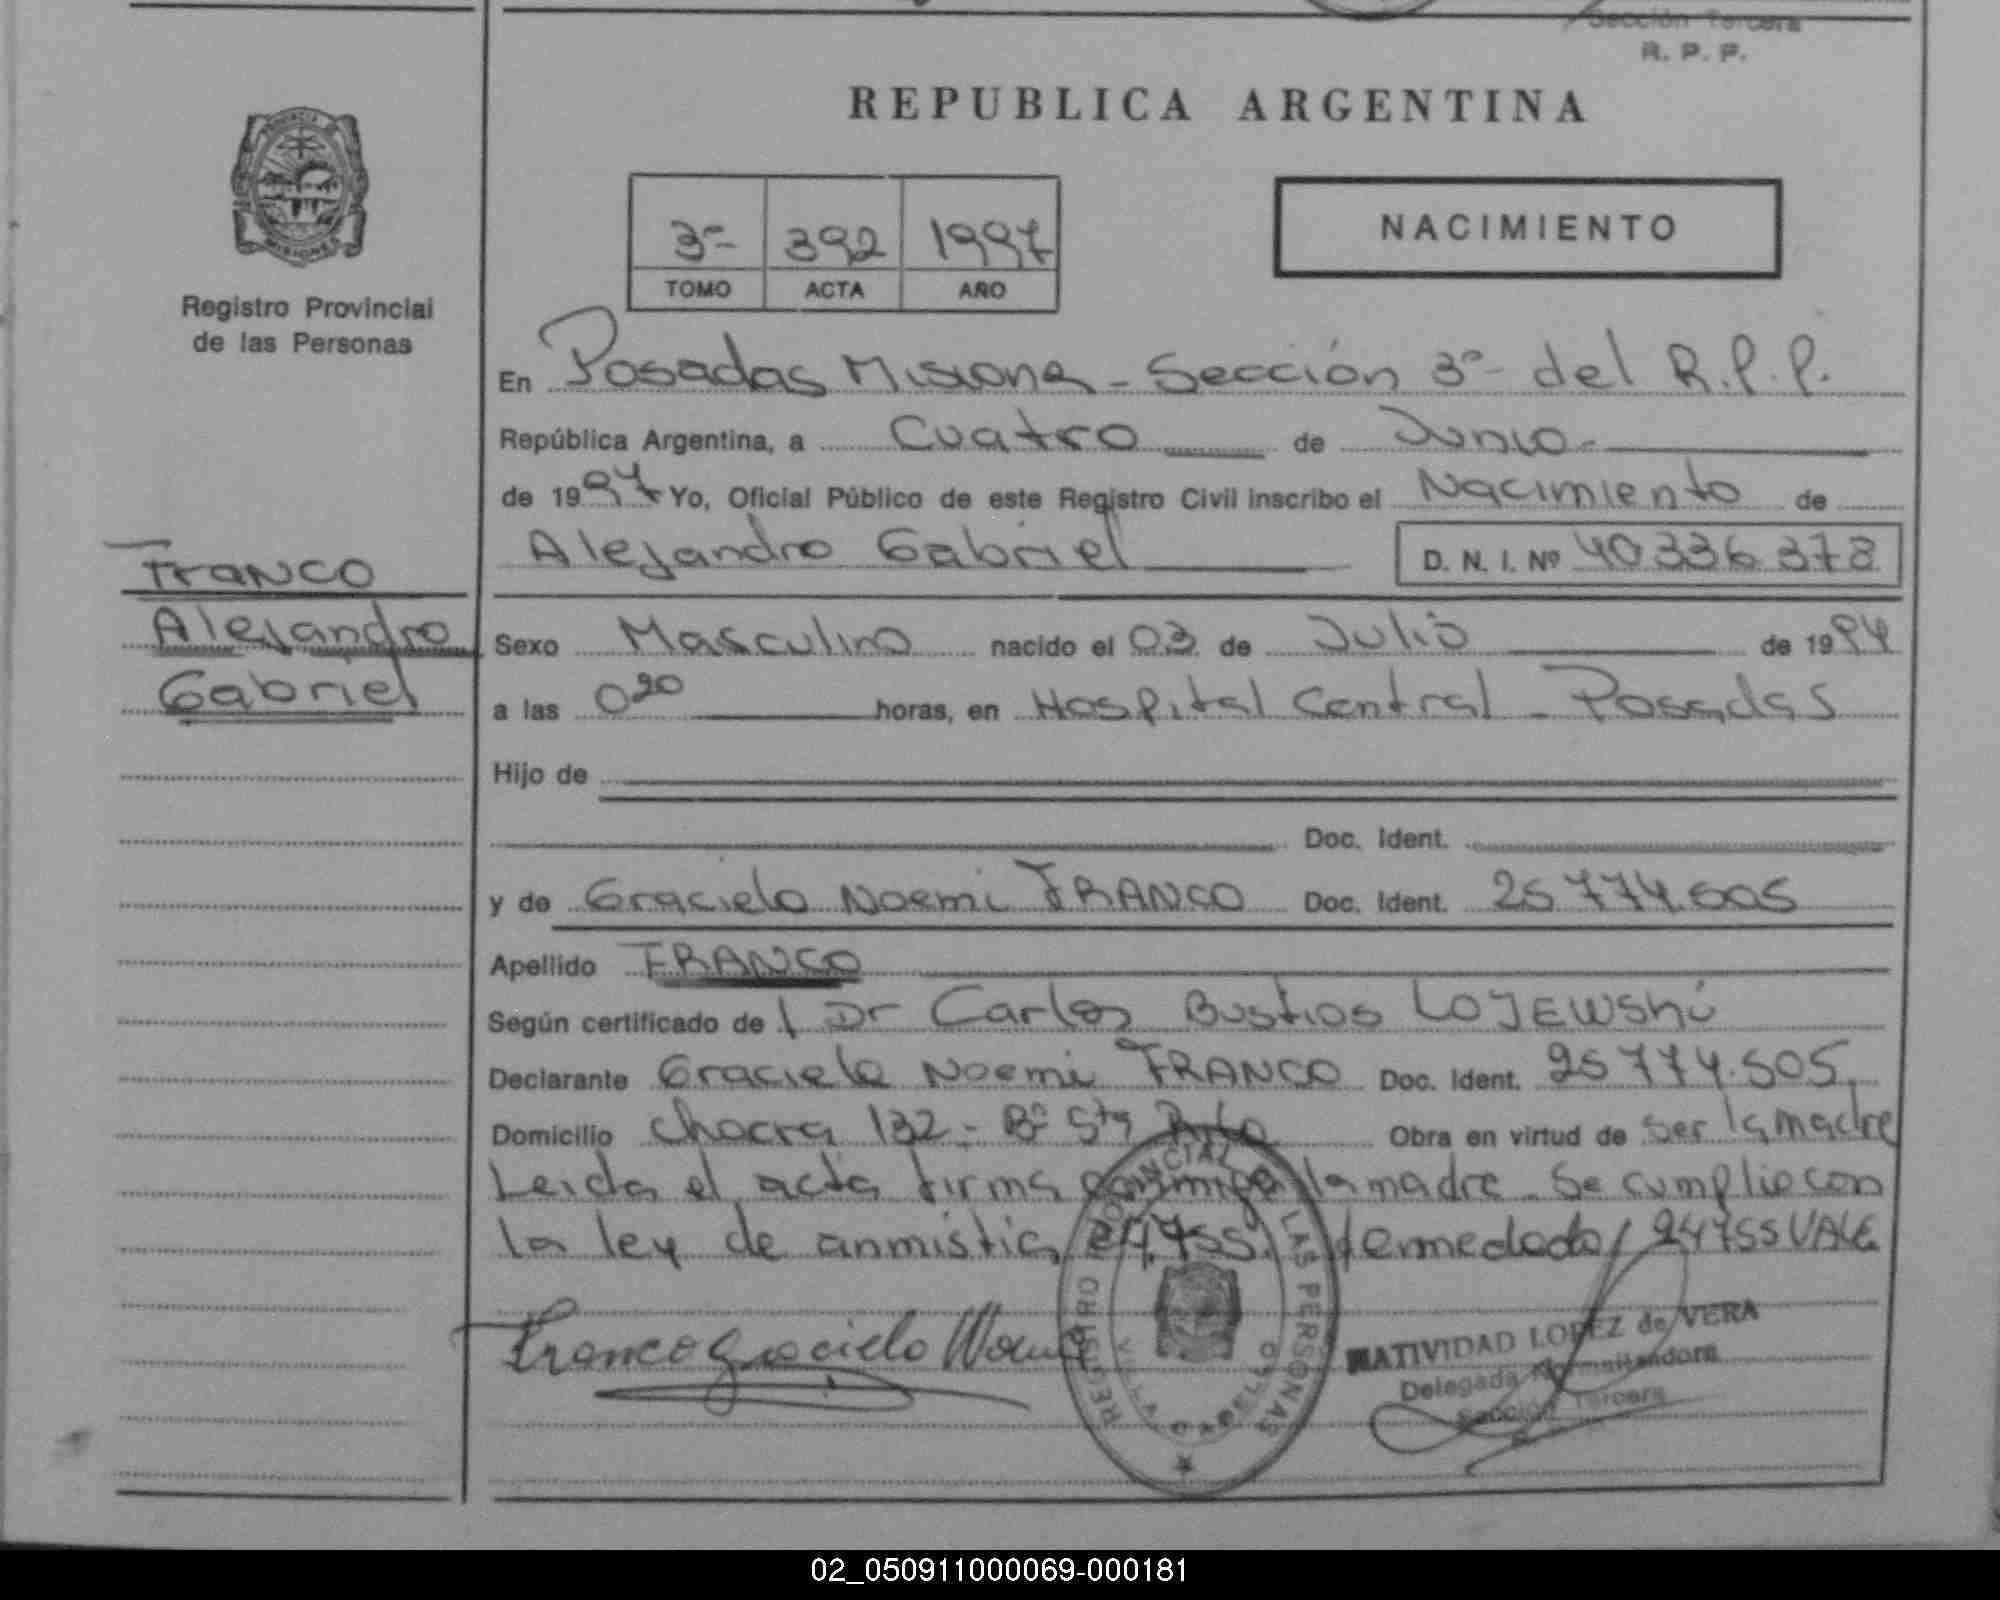 Sección Tercera
R. P. P.
REPUBLICA ARGENTINA
PROVINCIA
MISIONES
Registro Provincial
de las Personas
3º 392 1997
TOMO ACTA AÑO
NACIMIENTO
En Posadas Misiones - Sección 3º del R.P.P.
República Argentina, a Cuatro de Junio
de 1997 Yo, Oficial Público de este Registro Civil inscribo el Nacimiento de
Alejandro Gabriel D. N. I. Nº 40336378
Franco
Alejandro
Gabriel
Sexo Masculino nacido el 03 de Julio de 1994
a las 0 20 horas, en Hospital Central - Posadas
Hijo de
Doc. Ident.
y de Graciela Noemi FRANCO Doc. Ident. 25774.505
Apellido FRANCO
Según certificado de Dr Carlos Bustios
Declarante Graciela Noemi FRANCO Doc. Ident. 25774.505
Domicilio Chacra 132 - Bº Sta Rita Obra en virtud de ser la madre
Leida el acta firma conmigo la madre. Se cumplio con
la ley de anmistia 24755 / enmedado / 24755 VALE
Franco Graciela Noemi
REGISTRO PROVINCIAL DE LAS PERSONAS
VILLA CABELLO
NATIVIDAD LOPEZ de VERA
Delegada Normalizadora
Sección Tercera
02_050911000069-000181